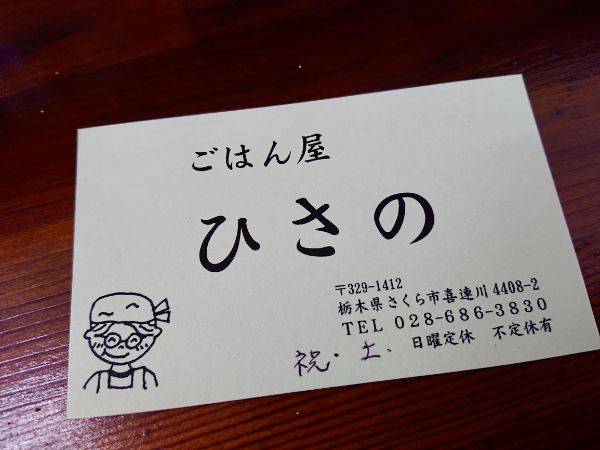 ごはん屋
ひさの
〒329-1412
栃木県さくら市喜連川4408-2
TEL 028-686-3830
祝・土、日曜定休 不定休有